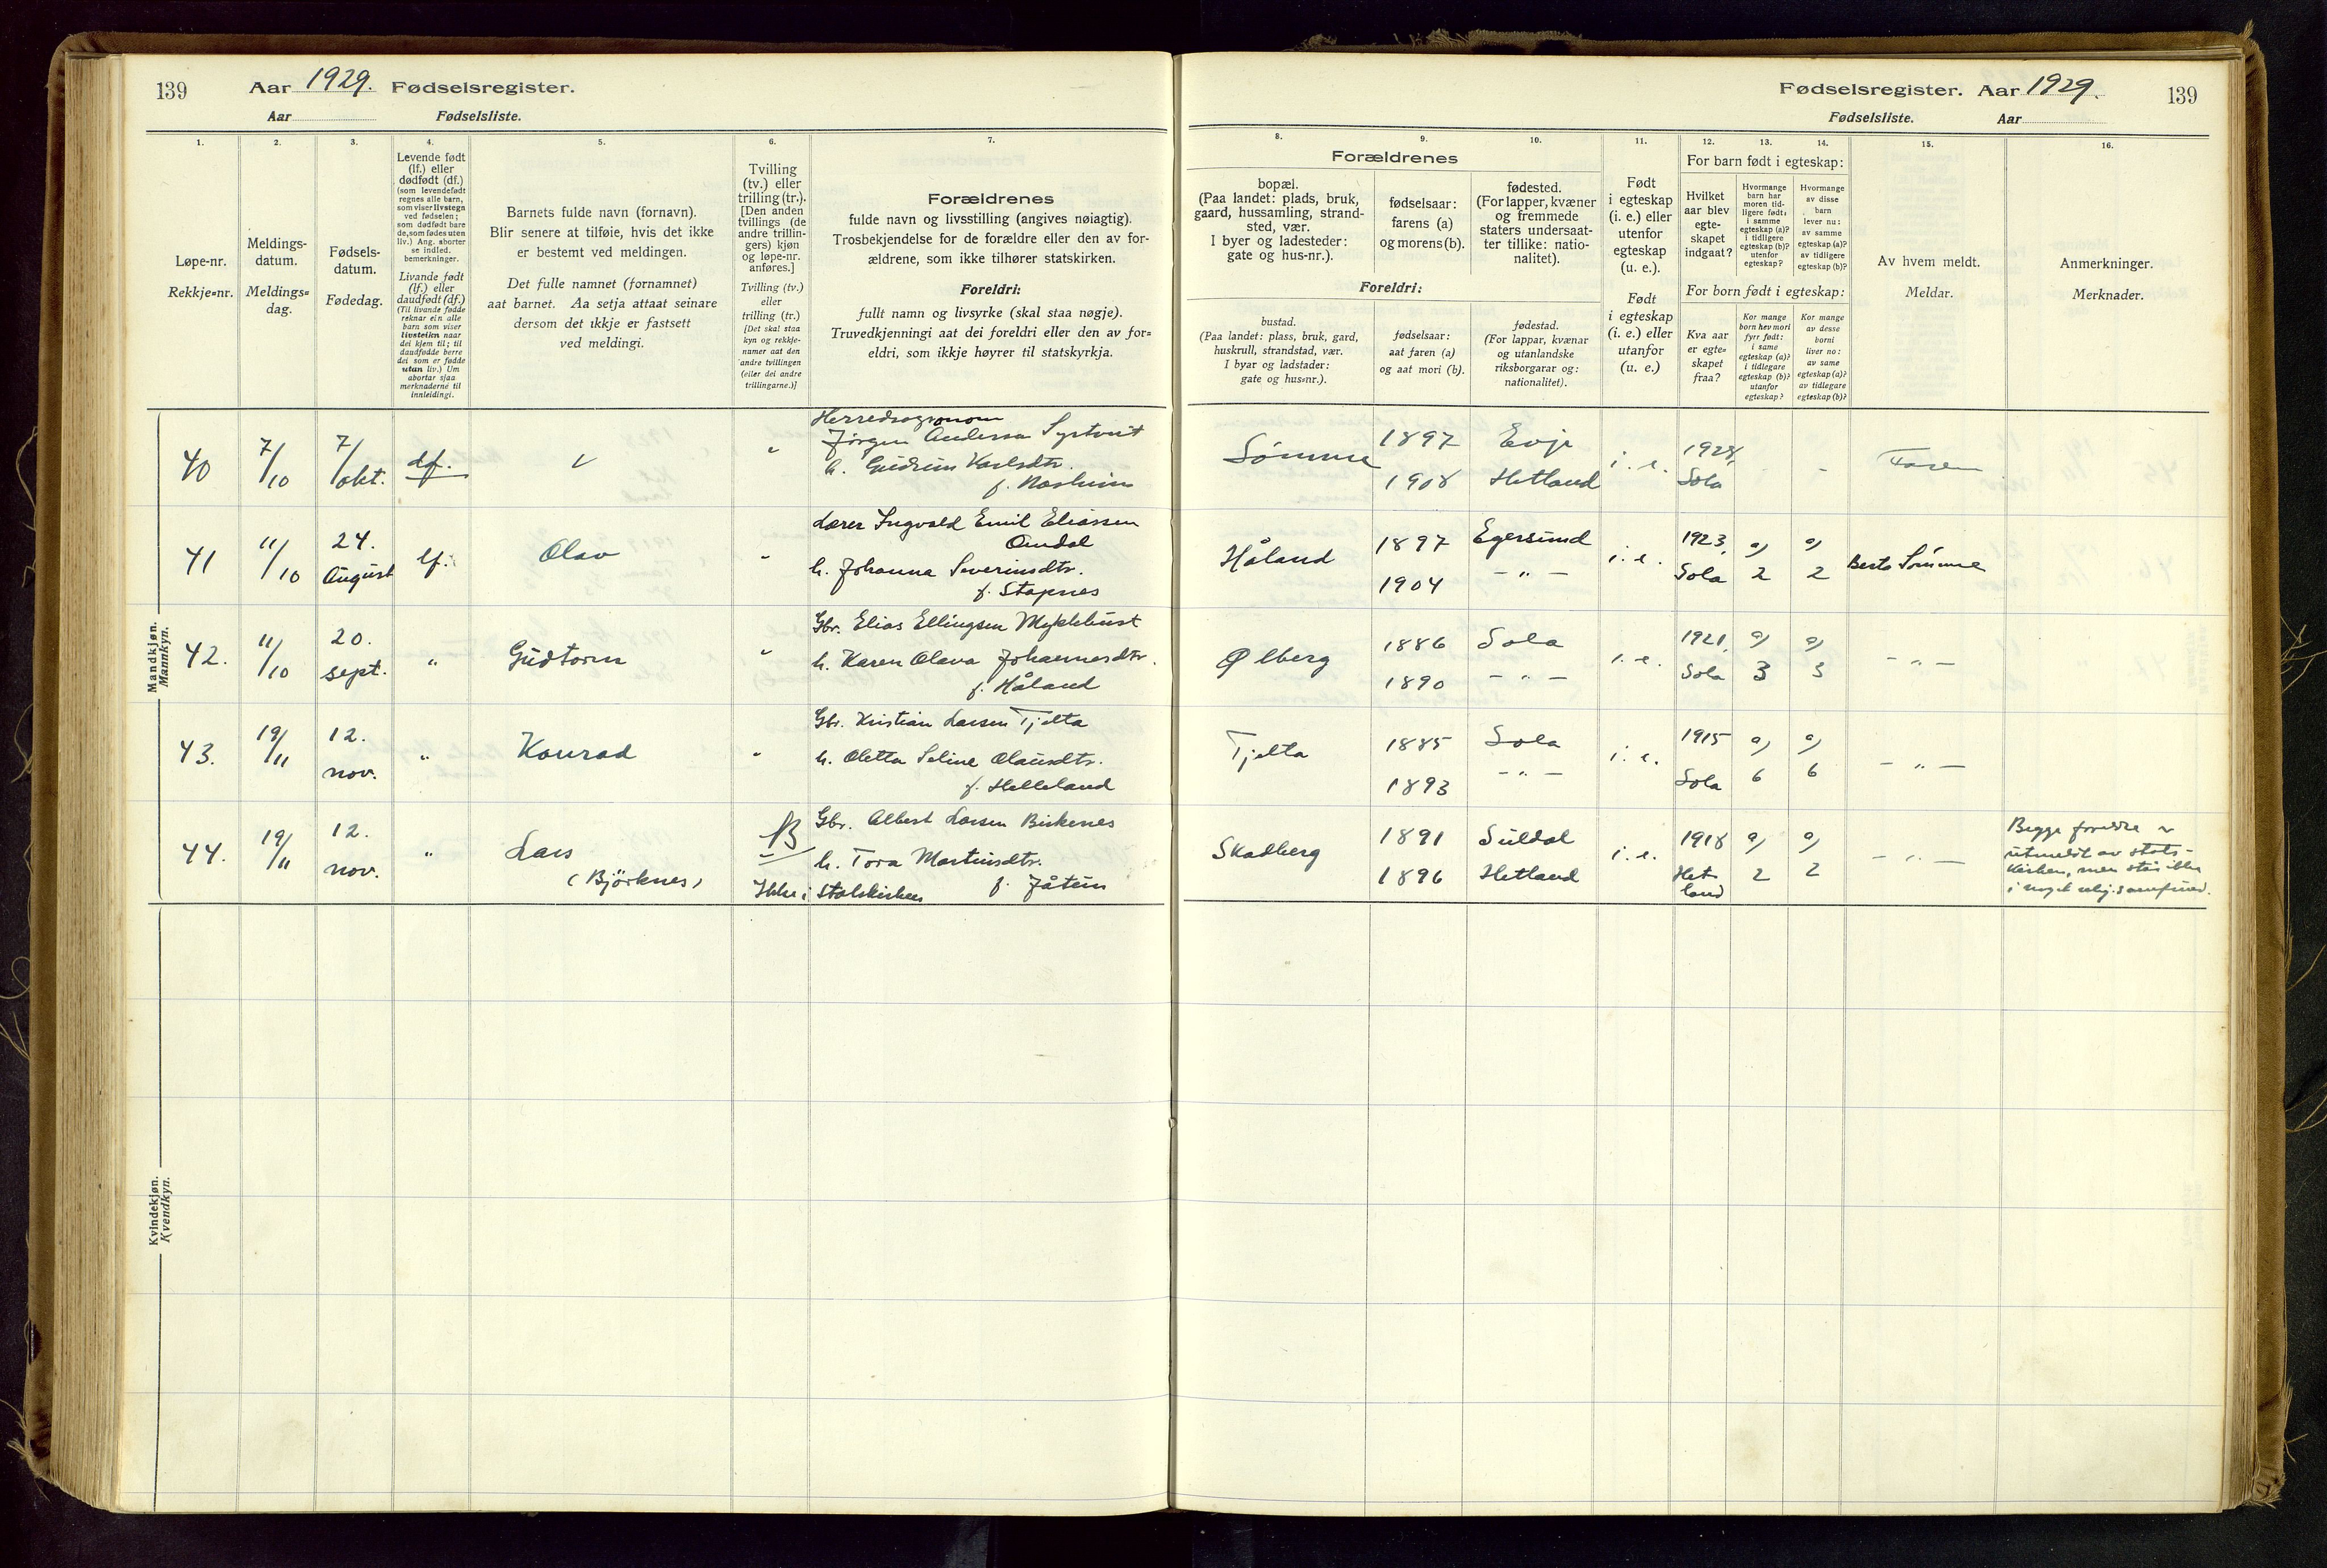 139
Aar 1929. Fødselsregister.
Aar Fødselsliste.
Fødselsregister. Aar 1929. 139
Fødselsliste. Aar
1. 2. 3. 4. 5. 6. 7.
Løpe-nr.
Rekkje=nr.
Meldings-
datum.
Meldings=
dag.
Fødsels-
datum.
Fødedag.
Levende født
(lf.) eller
dødfødt (df.)
(som levendefødt
regnes alle barn,
som viser livstegn
ved fødselen;
som dødfødt bare
de, som fødes uten
liv.) Ang. aborter
se indled.
bemerkninger.
Livande født
(lf.) eller
daudfødt (df.)
(Til livande fødde
reknar ein alle
barn som viser
livsteikn naar
dei kjem til; til
daudfødde berre
dei som er fødde
utan liv.) Um
abortar sjaa
merknaderne til
innleidingi.
Barnets fulde navn (fornavn).
Blir senere at tilføie, hvis det ikke
er bestemt ved meldingen.
Det fulle namnet (fornamnet)
aat barnet. Aa setja attaat seinare
dersom det ikkje er fastsett
ved meldingi.
Tvilling
(tv.) eller
trilling (tr.).
[Den anden
tvillings (de
andre trillin-
gers) kjøn
og løpe-nr.
anføres.]
Tvilling (tv.)
eller
trilling (tr.)
[Det skal staa
kyn og rekkje-
numer aat den
andre tvillingen
(eller dei andre
trillingarne.)]
Forældrenes
fulde navn og livsstilling (angives nøiagtig).
Trosbekjendelse for de forældre eller den av for-
ældrene, som ikke tilhører statskirken.
Foreldri:
fullt namn og livsyrke (skal staa nøgje).
Truvedkjenningi aat dei foreldri eller den av for=
eldri, som ikkje høyrer til statskyrkja.
8. 9. 10. 11. 12. 13. 14. 15. 16.
Forældrenes
bopæl.
(Paa landet: plads, bruk,
gaard, hussamling, strand-
sted, vær.
I byer og ladesteder:
gate og hus-nr.).
fødselsaar:
farens (a)
og morens (b).
fødested.
(For lapper, kvæner
og fremmede
staters undersaat-
ter tillike: natio-
nalitet).
Foreldri:
bustad.
(Paa landet: plass, bruk, gard,
huskrull, strandstad, vær.
I byar og ladstader:
gate og hus=nr.).
fødselsaar:
aat faren (a)
og aat mori (b).
fødestad.
(For lappar, kvænar
og utanlandske
riksborgarar og:
nationalitet).
Født
i egteskap
(i. e.) eller
utenfor
egteskap
(u. e.).
Født
i egteskap
(i. e.) eller
utanfor
(u. e.)
For barn født i egteskap:
Hvilket
aar blev
egte-
skapet
indgaat?
Hvormange
barn har
moren tid-
ligere født:
i samme
egteskap (a)?
i tidligere
egteskap (b)?
utenfor
egteskap?
Hvormange
av disse
barn
lever nu:
av samme
egteskap (a)?
av tidligere
egteskap (b)?
For born født i egteskap:
Kva aar
er egte=
skapet
fraa?
Kor mange
born hev mori
fyrr født:
i same
egteskap (a)?
i tidlegare
egteskap (b)?
utanfor
egteskap?
Kor mange
av desse
borni
liver no:
av same
egteskap (a)?
av tidlegare
egteskap (b)?
Av hvem meldt.
Meldar.
Anmerkninger.
Merknader.
Mandkjøn.
Mannkyn.
40 7/10 7/okt. df.
Herredsagronom
Jörgen Andersen
h. Gudrun Karlsdtr.
Sömme 1897 Evje i. e. 1928, Faren
1908 Hetland Sola
41 11/10 24. August lf. Olav " Lærer Ingvald Emil Eliassen
Omdal
h. Johanna Severinsdtr.
f. Stapnes
Håland 1897 Egersund i. e. 1923, a) a) Berte Sömme
1904 - " - Sola 2 2
42. 11/10 20. sept. " Gudtorm " Gbr. Elias Ellingsen Myklebust
h. Karen Olava Johannesdtr.
f. Håland
Ølberg 1886 Sola i. e. 1921, a) a) - " -
1890 - " - Sola 3 3
43. 19/11 12. nov. " Konrad " Gbr. Kristian Larsen Tjelta
h. Oletta Seline Olausdtr.
f. Helleland
Tjelta 1885 Sola i. e. 1915 a) a) - " -
1893 - " - Sola 6 6
44. 19/11 12. nov. " Lars
(Björknes)
Gbr. Albert Larsen Birkenes
h. Tora Martinsdtr.
Ikke i Statskirken f. Jåtein
Skadberg 1891 Suldal i. e. 1918 a) a) - " -
1896 Hetland Het-
land 2 2
Begge foreldre
utmeldt av stats-
kirken, men står ikke
i noget relig. samfund.
Kvindekjøn.
Kvendkyn.